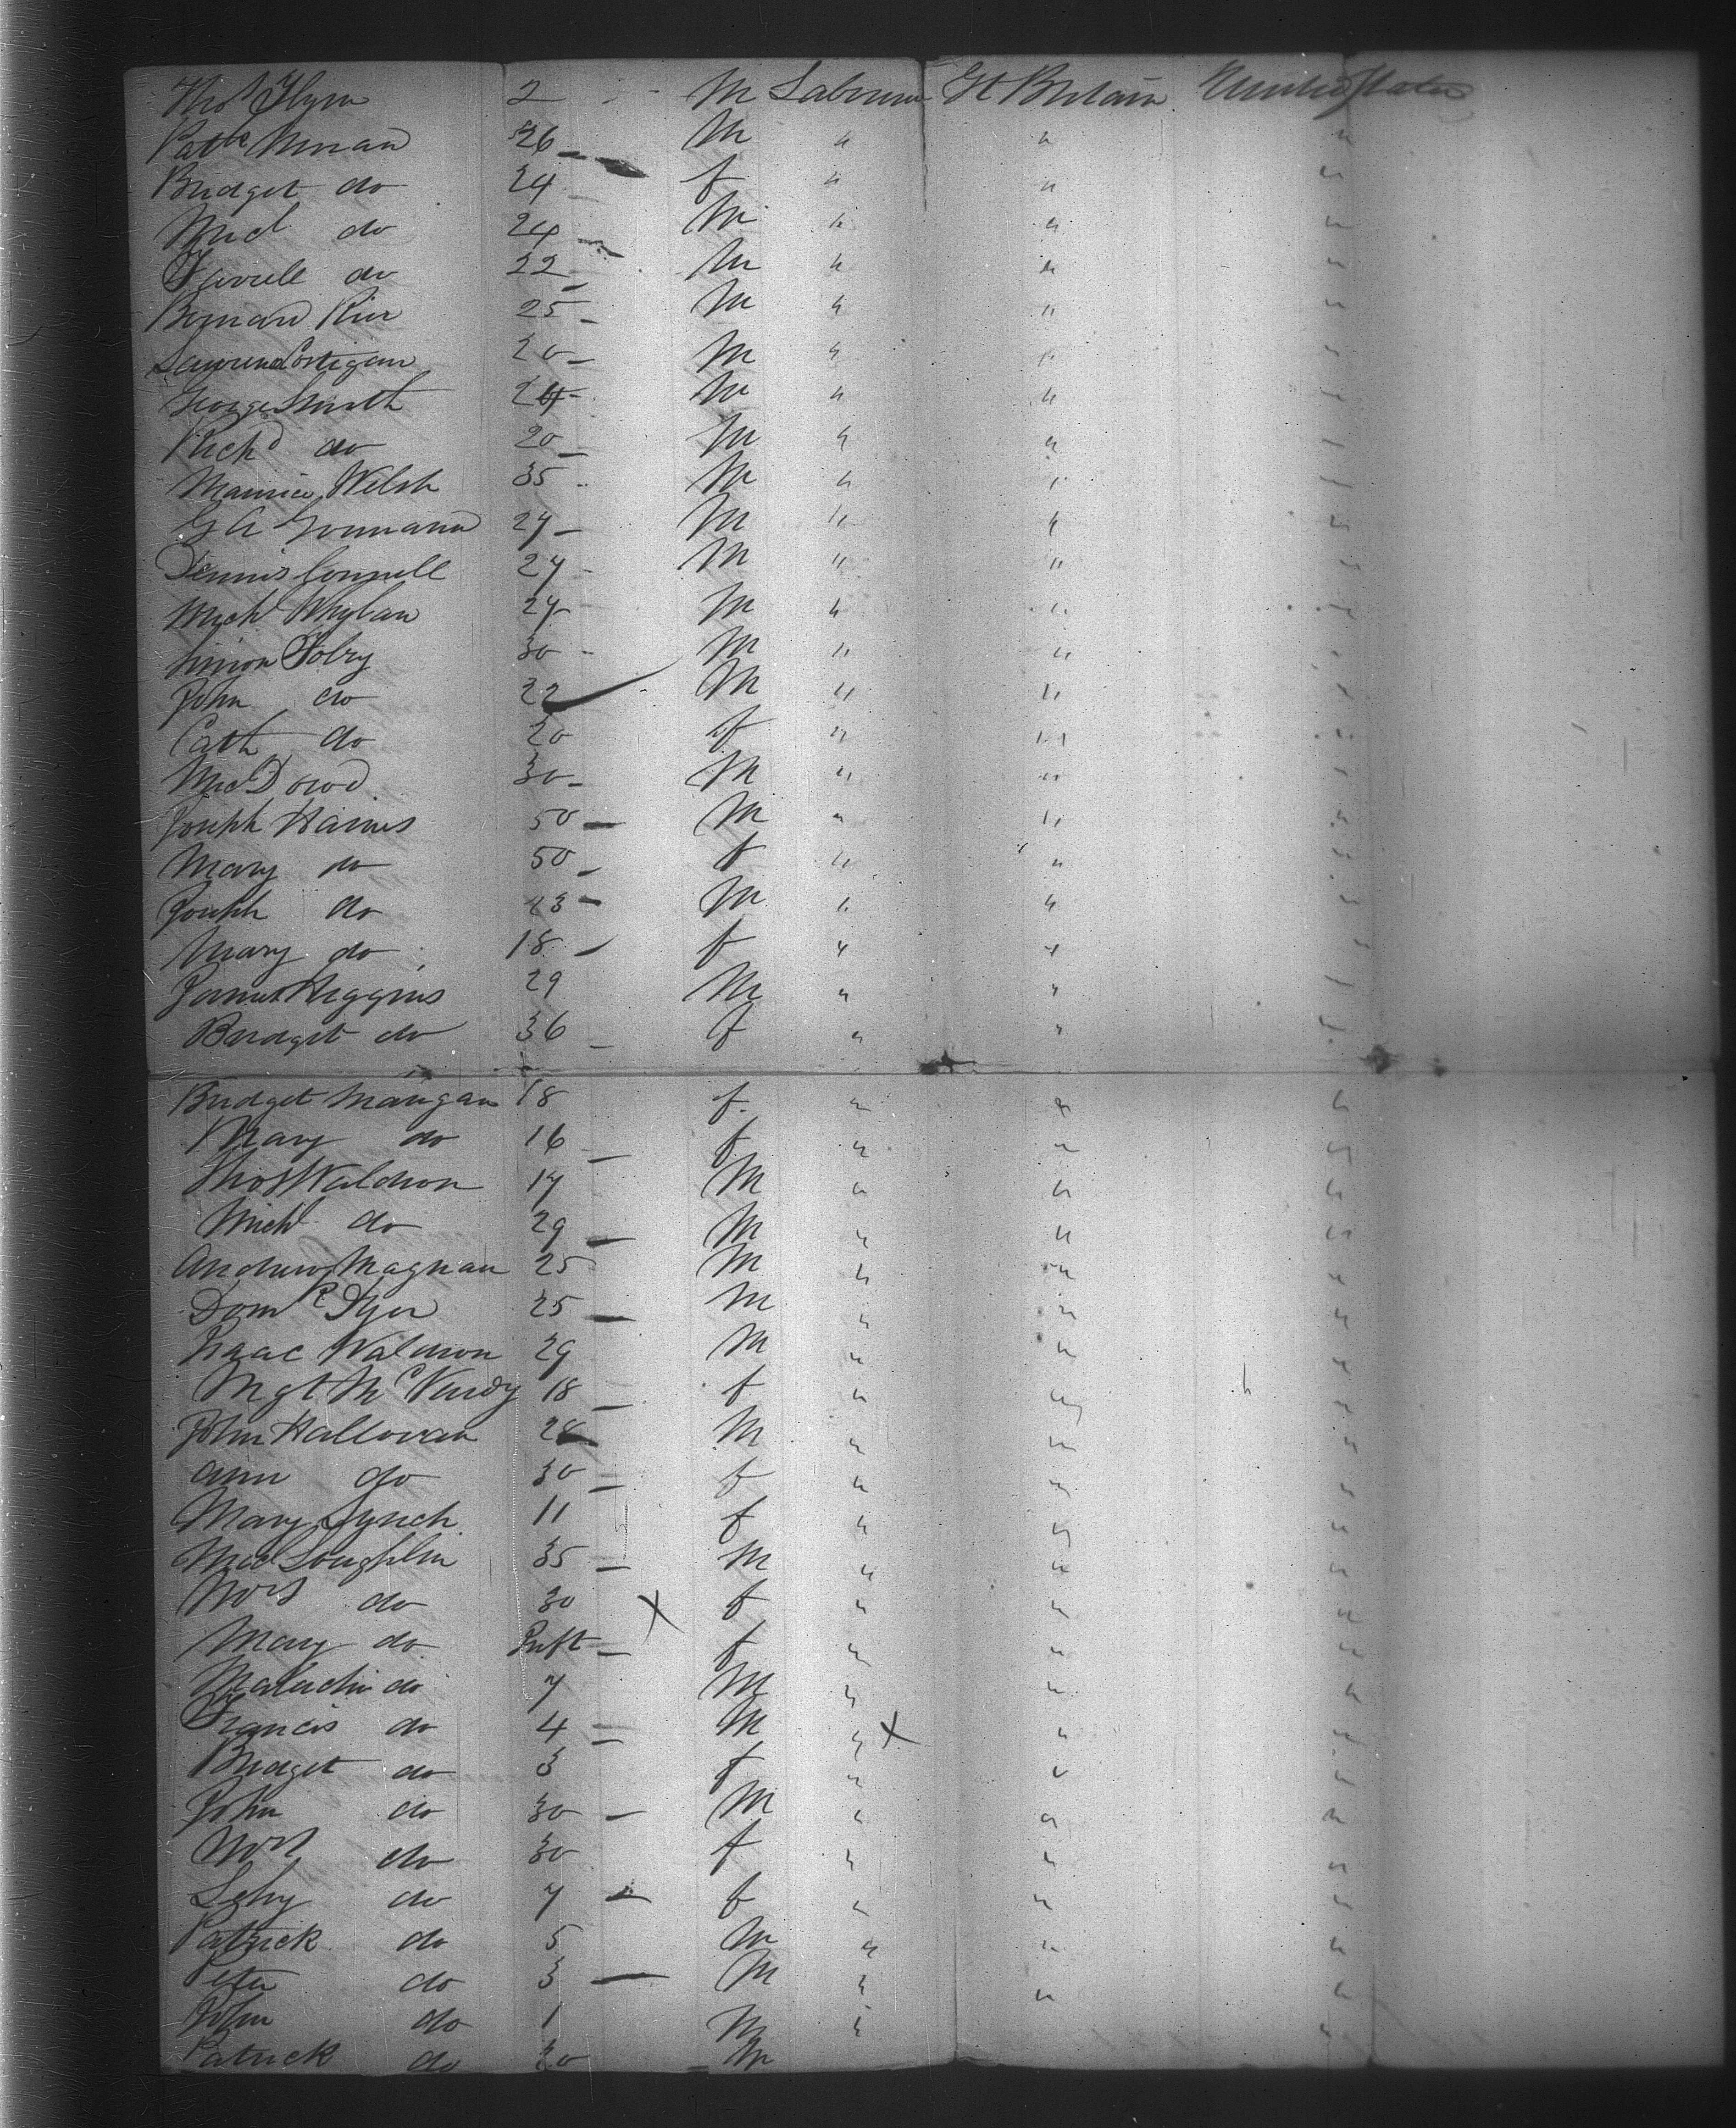 Thos Flynn 2 M Labourer Gt Britain United States
Patk Moran 26 M " " "
Bridget do 24 f " " "
Micl do 24 M " " "
Farrell do 22 M " " "
Bernard 25 M " " "
Lawrence Costigan 20 M " " "
George Smith 24 M " " "
Richd do 20 M " " "
Maurice Welsh 35 M " " "
G A 27 M " " "
Dennis Connell 27 M " " "
Michl Whylan 27 M " " "
Simon Foley 30 M " " "
John do 22 M " " "
Cath do 20 f " " "
Mic Dowd 30 M " " "
Joseph Haines 50 M " " "
Mary do 50 f " " "
Joseph do 23 M " " "
Mary do 18 f " " "
James Higgins 29 M " " "
Bridget do 36 f " " "
Bridget Mangan 18 f " " "
Mary do 16 f " " "
Thos Waldron 17 M " " "
Michl do 29 M " " "
Andrew Magnan 25 M " " "
Domk Dyer 25 M " " "
Isaac Waldron 29 M " " "
Mgt 18 f " " "
John Halloran 28 M " " "
Ann do 30 f " " "
Mary Lynch 11 f " " "
Micl Loughlin 35 M " " "
Mrs do 30 X f " " "
Mary do Inft f " " "
Malachi do 7 M " " "
Francis do 4 M " X " "
Bridget do 3 f " " "
John do 30 M " " "
Mrs do 30 f " " "
do 7 f " " "
Patrick do 5 M " " "
Peter do 3 M " " "
John do 1 M " "
Patrick do 20 M